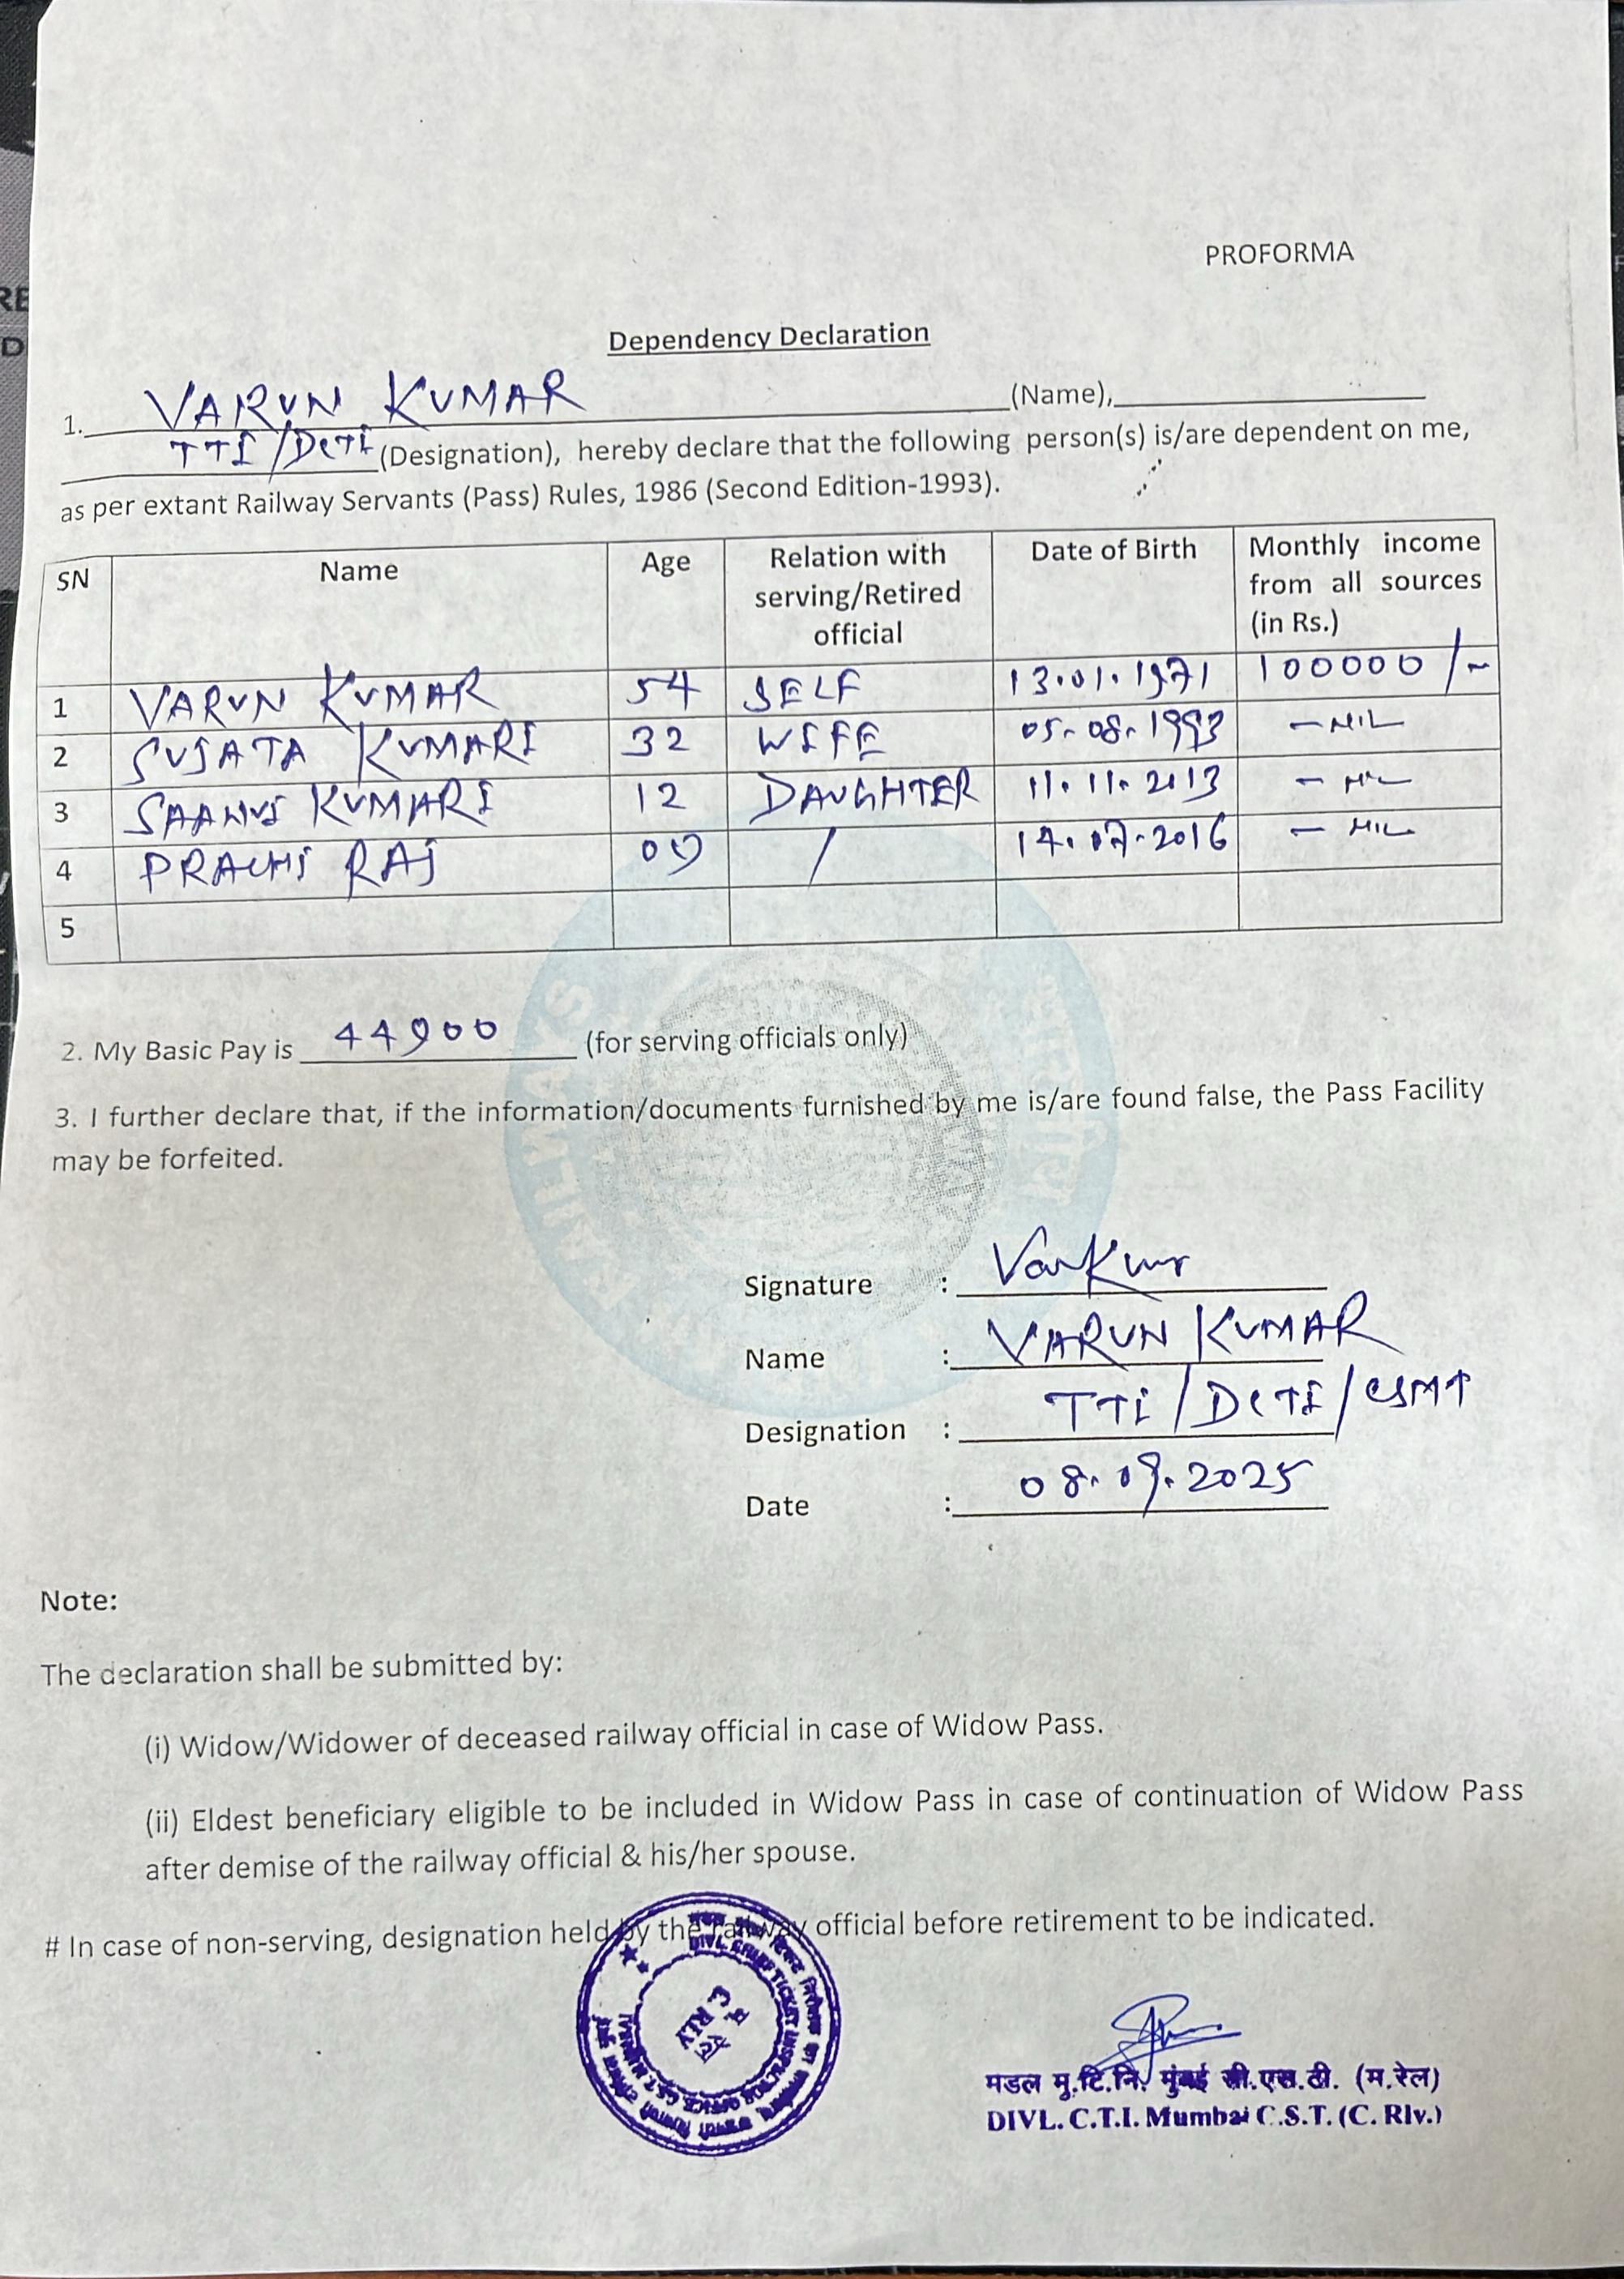 PROFORMA
Dependency Declaration
1. VARUN KUMAR (Name),
TTI/DCTI (Designation), hereby declare that the following person(s) is/are dependent on me,
as per extant Railway Servants (Pass) Rules, 1986 (Second Edition-1993).
SN Name Age Relation with serving/Retired official Date of Birth Monthly income from all sources (in Rs.)
1 VARUN KUMAR 54 SELF 13.01.1971 100000/-
2 SUJATA KUMARI 32 WIFE 05-08-1993 - NIL
3 SAANVI KUMARI 12 DAUGHTER 11.11.2013 - NIL
4 PRACHI RAJ 09 / 14.07.2016 - NIL
5
2. My Basic Pay is 44900 (for serving officials only)
3. I further declare that, if the information/documents furnished by me is/are found false, the Pass Facility
may be forfeited.
Signature : VarKumr
Name : VARUN KUMAR
Designation : TTI/DCTI/CSMT
Date : 08.09.2025
Note:
The declaration shall be submitted by:
(i) Widow/Widower of deceased railway official in case of Widow Pass.
(ii) Eldest beneficiary eligible to be included in Widow Pass in case of continuation of Widow Pass
after demise of the railway official & his/her spouse.
# In case of non-serving, designation held by the railway official before retirement to be indicated.
DIVL. CHIEF TICKET INSPECTOR OFFICE
C RLY
मडल मु.टि.नि. मुंबई सी.एस.टी. (म.रेल)
DIVL. C.T.I. Mumbai C.S.T. (C. Rlv.)